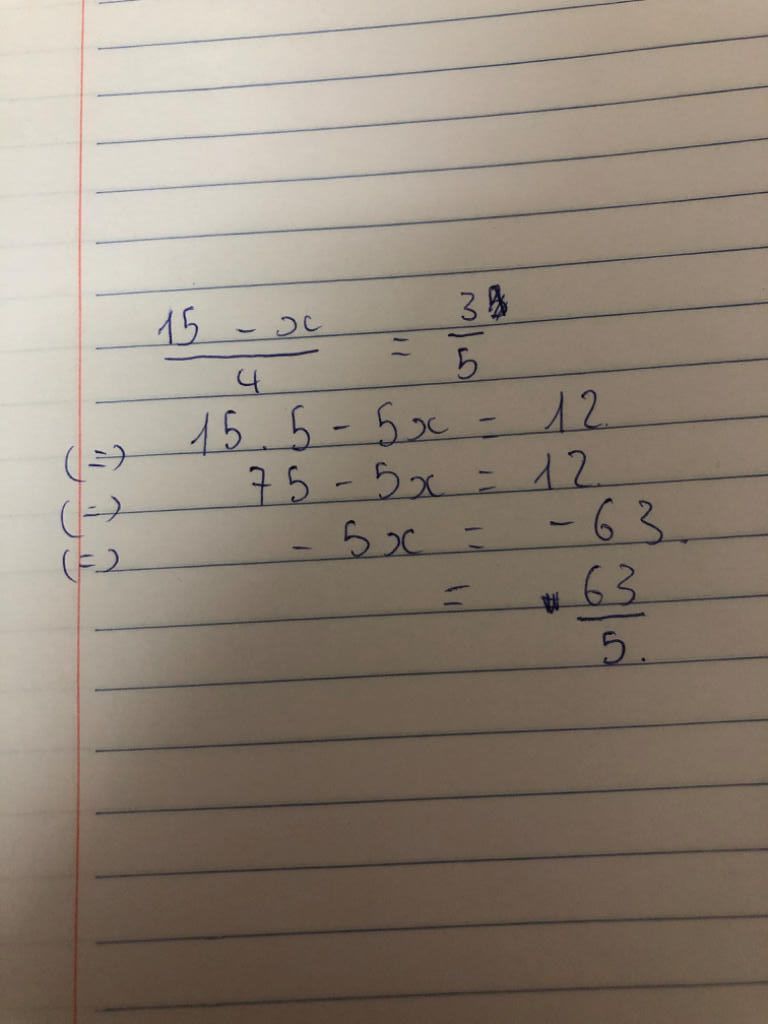 15 - x / 4 = 3 / 5
(=) 15.5 - 5x = 12
(=) 75 - 5x = 12
(=) - 5x = - 63.
= 63 / 5.